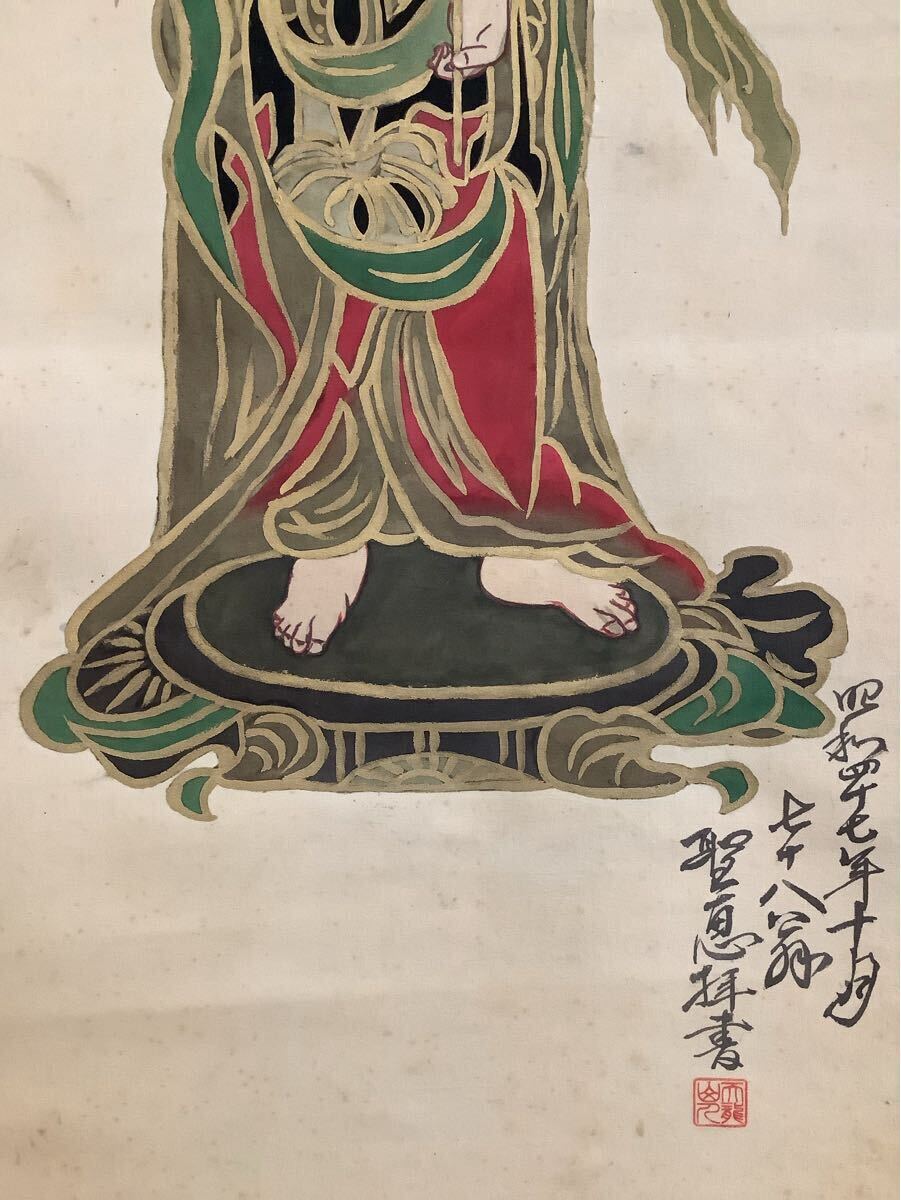 昭和四十七年十月
七十八翁
聖恵拝書